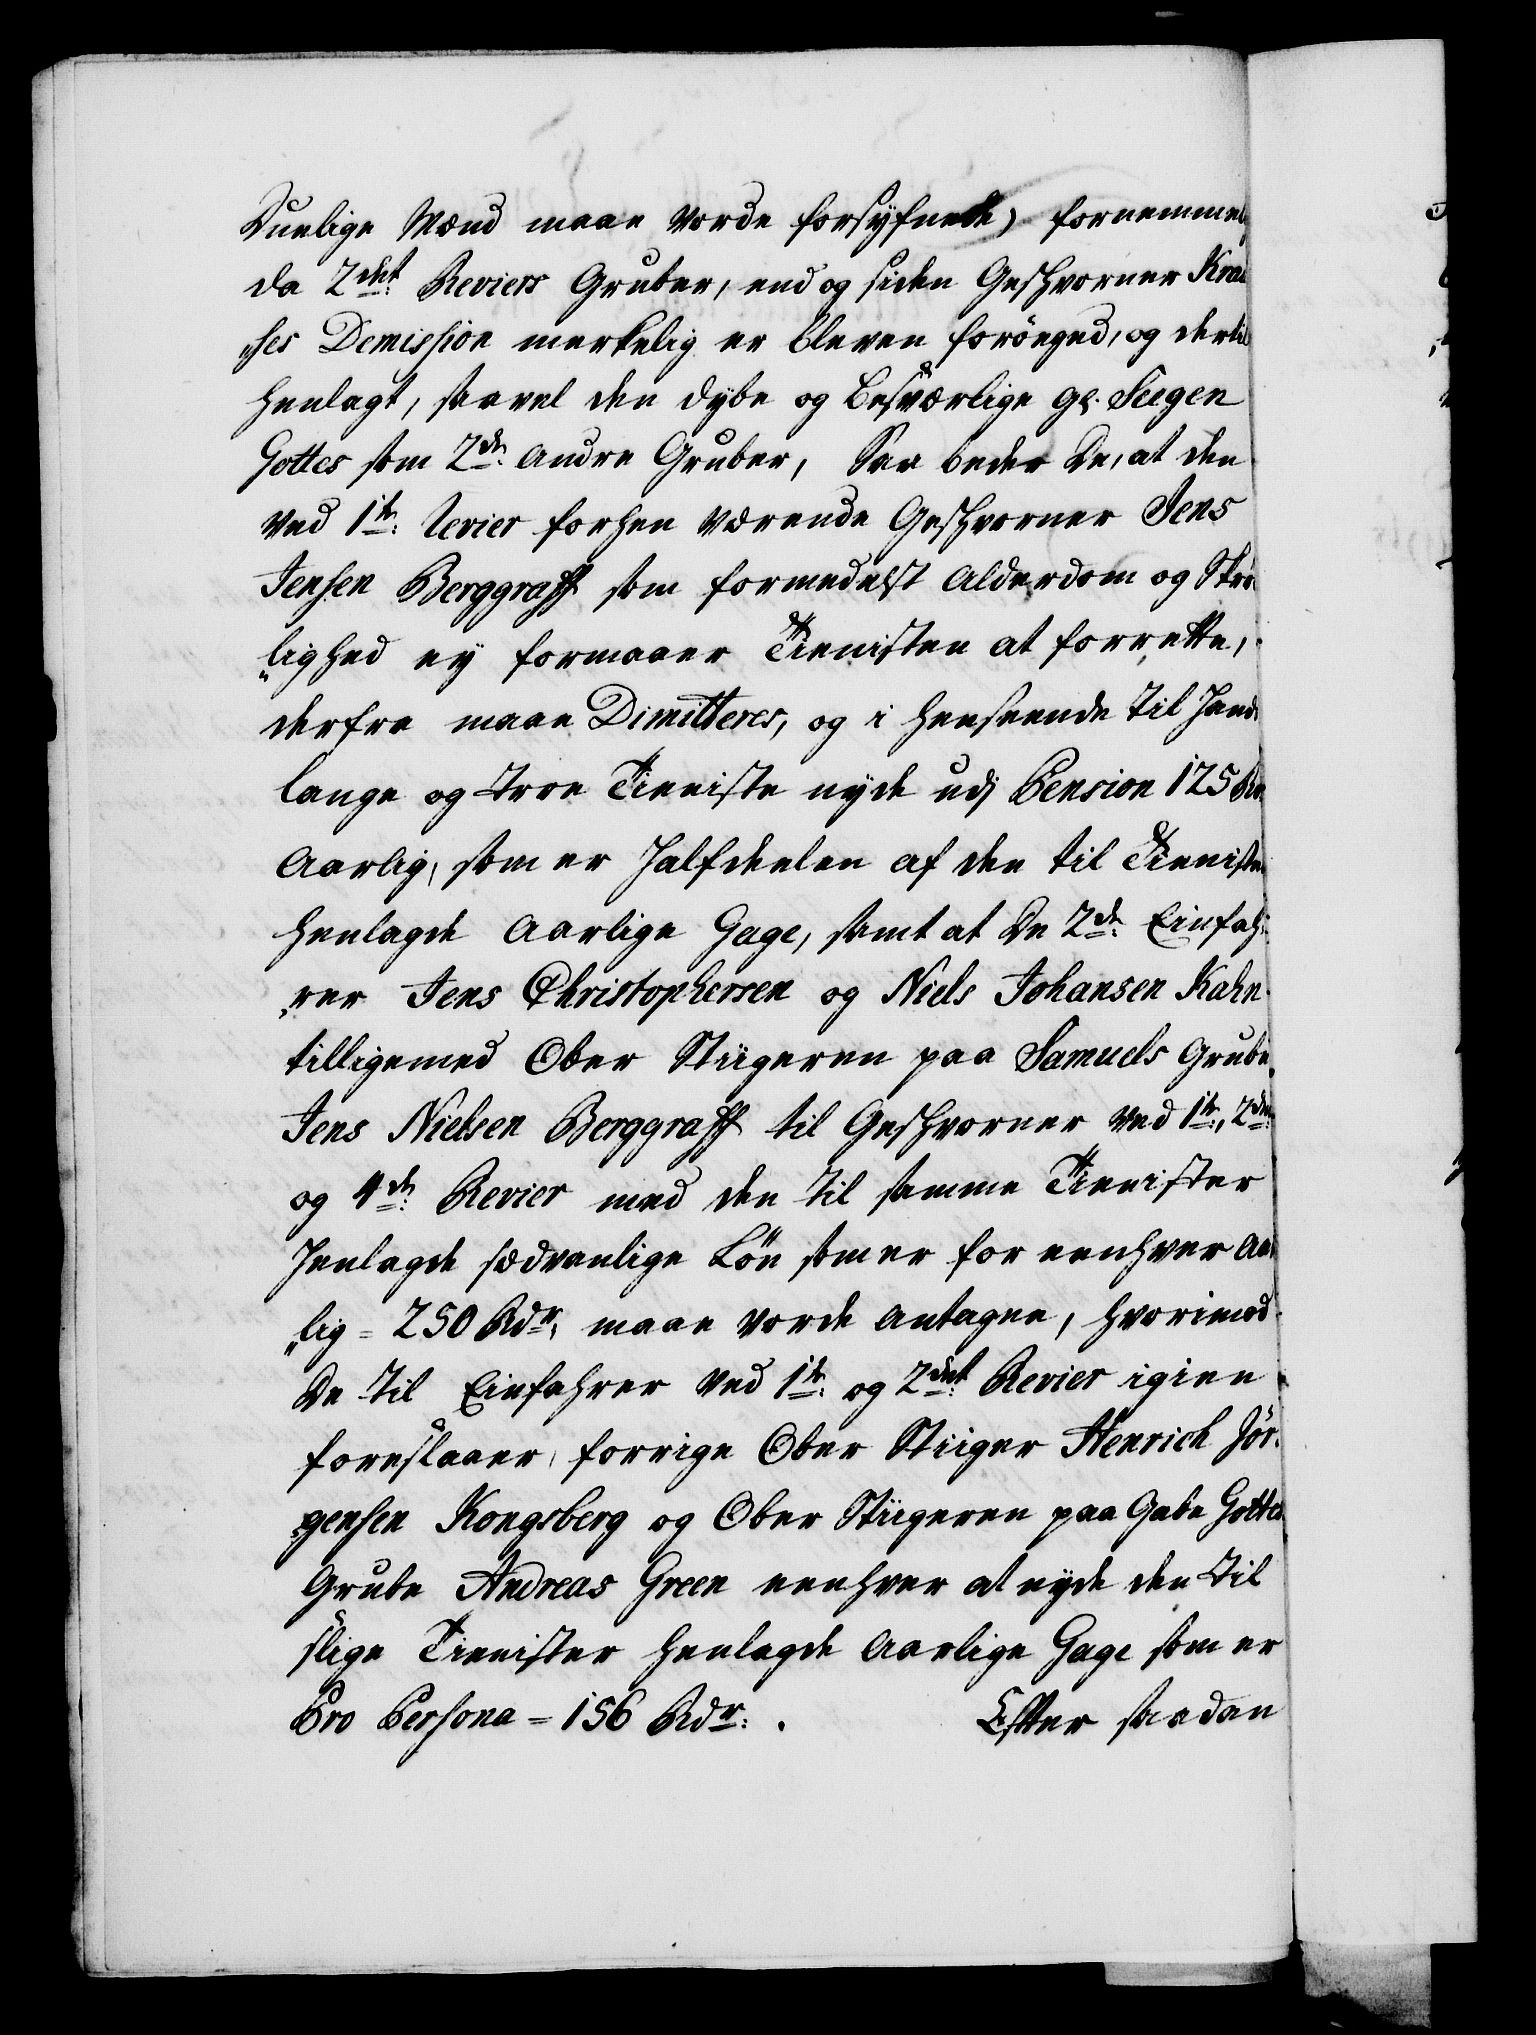 Duelige Mænd maae vorde forsÿfnede, fornemmel
da 2det: Reviers Gruber, end og siden Geschvorner Krau
„ses Demission merkelig er bleven forönged, og dertil
henlagt, saavel den dybe og besværlige gl. Seegen
Gottes som 2de: andre Gruber, Saa beder De, at den
ved 1te: Revier forhen værende Geschvorner Jens
Jensen Berggraff som formedelst Alderdom og Skrö„
„lighed ey formaaer Tienisten at forrette,
derfra maae Dimitteres, og i henseende til Hans
lange og troe Tieniste nyde udj Pension 125 Rdr
Aarlig, som er Halfdeelen af den til Tienisten
henlagde Aarlige Gage, samt at De 2de: Einfah„
„rer Jens Christophersen og Niels Johansen Kahn
tilligemed Ober Stiigeren paa Samuels Grube,
Jens Nielsen Berggraff til Geschvorner ved 1te:, 2den:
og 4de: Revier med den til samme Tienister
Henlagde sædvanlige Lön som er for eenhver Aar
„lig = 250 Rdr:, maae vorde antagne, hvorimod
De til Einfahrer ved 1te: og 2det: Revier igien
foreslaaer, forrige Ober Stiiger Henrich Jör„
„gensen Kongsberg og Ober Stiigeren paa Gabe Gottes
Grube Andreas Green eenhver at nyde den til
slige Tienister henlagde Aarlige Gage som er
Pro Persona = 156 Rdr: . Efter saadan